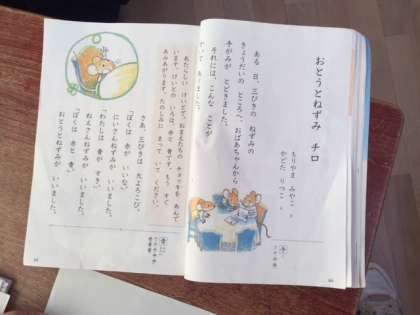 おとうとねずみ チロ
もりやま みやこ 文
かどた りつこ 絵
ある 日、三びきの ねずみの
きょうだいの ところへ、おばあちゃんから
手がみが とどきました。
それには、こんな ことが
かいて ありました。
あたらしい けいとで、おまえたちの チョッキを あんで
います。けいとの いろは、赤と 青です。もう すぐ
あみあがります。たのしみに まって いて ください。
さあ、三びきは 大よろこび。
「ぼくは 赤が いいな。」
にいさんねずみが いいました。
「わたしは 青が すき。」
ねえさんねずみが いいました。
「ぼくは 赤と 青。」
おとうとねずみが いいました。